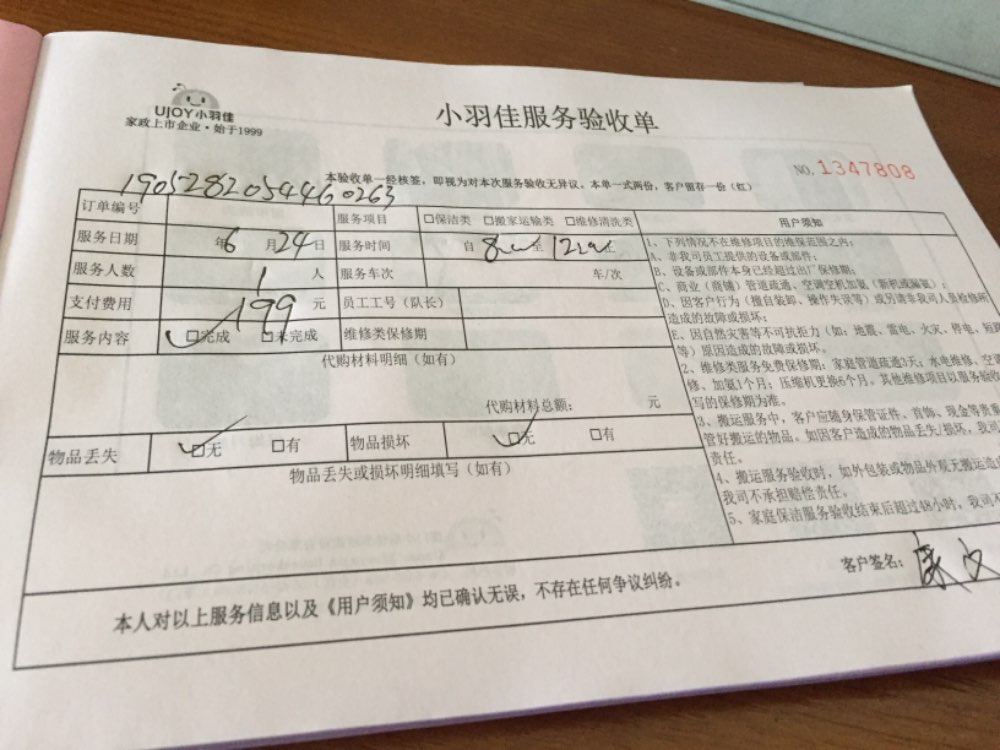 UJOY小羽佳
家政上市企业·始于1999
小羽佳服务验收单
NO. 1347808
本验收单一经核签，即视为对本次服务验收无异议。本单一式两份，客户留存一份（红）
1905282054460263
订单编号 服务项目 □保洁类 □搬家运输类 □维修清洗类
服务日期 年6月24日 服务时间 自 8 至 12
服务人数 1 人 服务车次 车/次
支付费用 199 元 员工工号（队长）
服务内容 □完成 □未完成 维修类保修期
代购材料明细（如有）
代购材料总额： 元
物品丢失 □无 □有 物品损坏 □无 □有
物品丢失或损坏明细填写（如有）
用户须知
1、下列情况不在维修项目的维保范围之内：
A、非我司员工提供的设备或部件；
B、设备或部件本身已经超过出厂保修期；
C、商业（商铺）管道疏通、空调空机加氨（新机或漏氨）；
D、因客户行为（擅自装卸、操作失误等）或另请非我司人员检修所
造成的故障或损坏；
E、因自然灾害等不可抗拒力（如：地震、雷电、火灾、停电、短路
等）原因造成的故障或损坏。
2、维修类服务免费保修期：家庭管道疏通3天；水电维修、空
修、加氨1个月；压缩机更换6个月。其他维修项目以服务验收
写的保修期为准。
3、搬运服务中，客户应随身保管证件、首饰、现金等贵重
管好搬运的物品。如因客户造成的物品丢失/损坏，我司
责任。
4、搬运服务验收时，如外包装或物品外观无搬运造成
我司不承担赔偿责任。
5、家庭保洁服务验收结束后超过48小时，我司不
客户签名：
本人对以上服务信息以及《用户须知》均已确认无误，不存在任何争议纠纷。